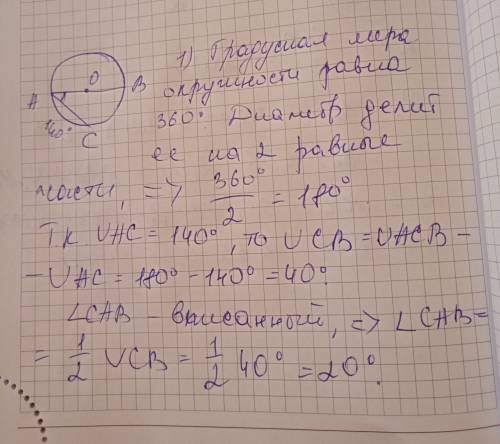 1) Градусная мера
окружности равна
360° Диаметр делит
ее на 2 равные
части, => 360°/2 = 180°
Т.к ∪AC = 140°, то ∪CB = ∪ACB -
- ∪AC = 180° - 140° = 40°.
∠CAB - вписанный, => ∠CAB =
= 1/2 ∪CB = 1/2 40° = 20°.
O
A
B
C
140°